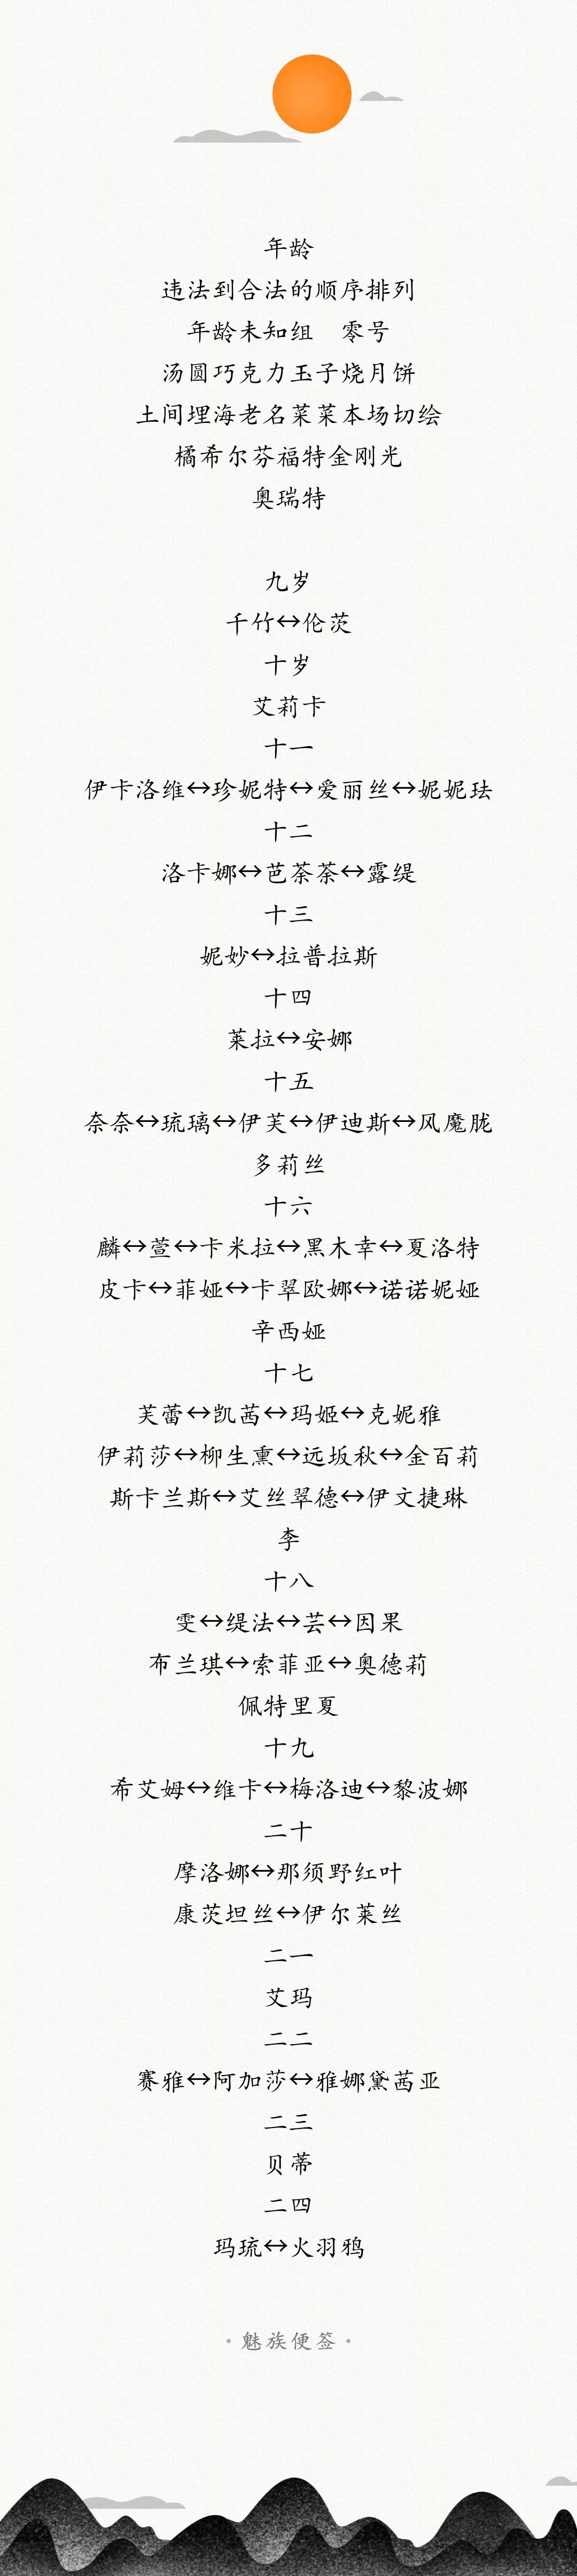 年龄
违法到合法的顺序排列
年龄未知组　零号
汤圆巧克力玉子烧月饼
土间埋海老名菜菜本场切绘
橘希尔芬福特金刚光
奥瑞特
九岁
千竹↔伦茨
十岁
艾莉卡
十一
伊卡洛维↔珍妮特↔爱丽丝↔妮妮珐
十二
洛卡娜↔芭荼荼↔露缇
十三
妮妙↔拉普拉斯
十四
莱拉↔安娜
十五
奈奈↔琉璃↔伊芙↔伊迪斯↔风魔胧
多莉丝
十六
麟↔萱↔卡米拉↔黑木幸↔夏洛特
皮卡↔菲娅↔卡翠欧娜↔诺诺妮娅
辛西娅
十七
芙蕾↔凯茜↔玛姬↔克妮雅
伊莉莎↔柳生熏↔远坂秋↔金百莉
斯卡兰斯↔艾丝翠德↔伊文捷琳
李
十八
雯↔缇法↔芸↔因果
布兰琪↔索菲亚↔奥德莉
佩特里夏
十九
希艾姆↔维卡↔梅洛迪↔黎波娜
二十
摩洛娜↔那须野红叶
康茨坦丝↔伊尔莱丝
二一
艾玛
二二
赛雅↔阿加莎↔雅娜黛茜亚
二三
贝蒂
二四
玛琉↔火羽鸦
·魅族便签·